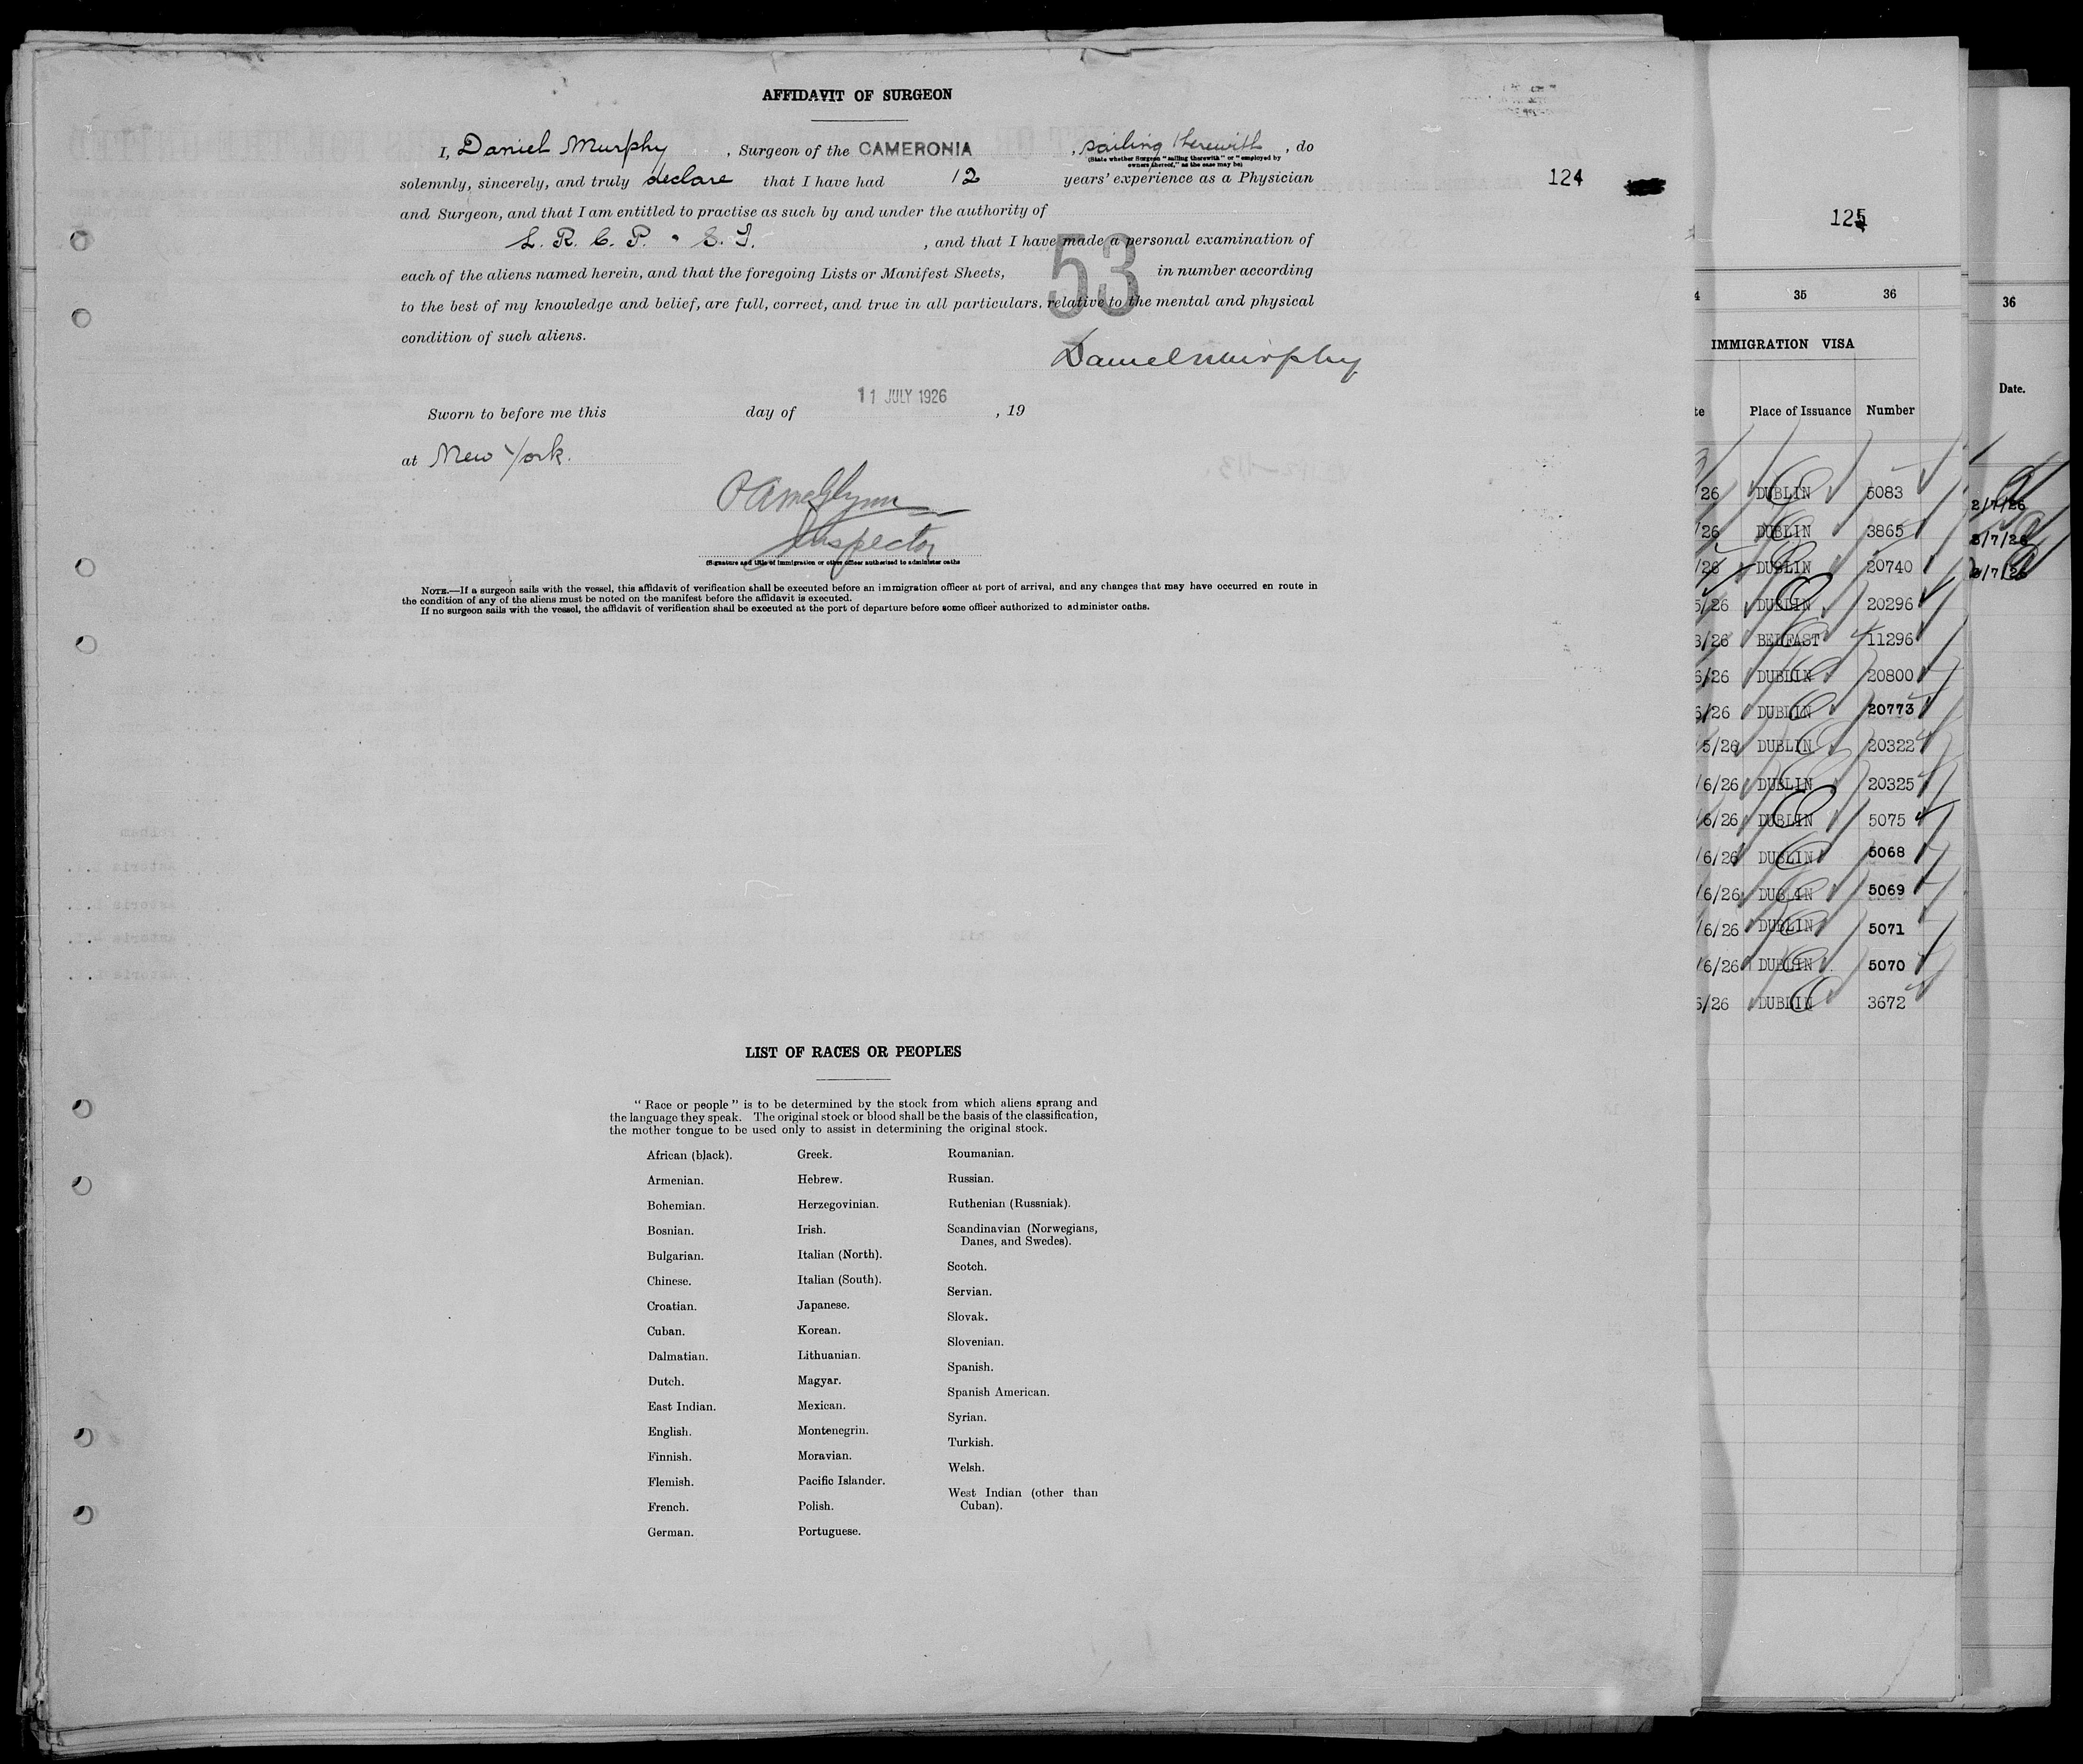 AFFIDAVIT OF SURGEON
I, Daniel Murphy , Surgeon of the CAMERONIA , sailing therewith , do
(State whether Surgeon "sailing therewith" or "employed by
owners thereof," as the case may be)
solemnly, sincerely, and truly declare that I have had 12 years' experience as a Physician
124
and Surgeon, and that I am entitled to practise as such by and under the authority of
L. R. C. P. & S. I. , and that I have made a personal examination of
each of the aliens named herein, and that the foregoing Lists or Manifest Sheets, 53 in number according
to the best of my knowledge and belief, are full, correct, and true in all particulars, relative to the mental and physical
condition of such aliens.
Daniel Murphy
11 JULY 1926
Sworn to before me this day of , 19
at New York.
Inspector
(Signature and title of immigration or other officer authorized to administer oaths
NOTE.—If a surgeon sails with the vessel, this affidavit of verification shall be executed before an immigration officer at port of arrival, and any changes that may have occurred en route in
the condition of any of the aliens must be noted on the manifest before the affidavit is executed.
If no surgeon sails with the vessel, the affidavit of verification shall be executed at the port of departure before some officer authorized to administer oaths.
LIST OF RACES OR PEOPLES
" Race or people " is to be determined by the stock from which aliens sprang and
the language they speak. The original stock or blood shall be the basis of the classification,
the mother tongue to be used only to assist in determining the original stock.
African (black).
Armenian.
Bohemian.
Bosnian.
Bulgarian.
Chinese.
Croatian.
Cuban.
Dalmatian.
Dutch.
East Indian.
English.
Finnish.
Flemish.
French.
German.
Greek.
Hebrew.
Herzegovinian.
Irish.
Italian (North).
Italian (South).
Japanese.
Korean.
Lithuanian.
Magyar.
Mexican.
Montenegrin.
Moravian.
Pacific Islander.
Polish.
Portuguese.
Roumanian.
Russian.
Ruthenian (Russniak).
Scandinavian (Norwegians,
Danes, and Swedes).
Scotch.
Servian.
Slovak.
Slovenian.
Spanish.
Spanish American.
Syrian.
Turkish.
Welsh.
West Indian (other than
Cuban).
125
4 35 36
IMMIGRATION VISA
te Place of Issuance Number
/26 DUBLIN 5083
/26 DUBLIN 3865
/26 DUBLIN 20740
5/26 DUBLIN 20296
6/26 BELFAST 11296
6/26 DUBLIN 20800
6/26 DUBLIN 20773
/5/26 DUBLIN 20322
/6/26 DUBLIN 20325
/6/26 DUBLIN 5075
/6/26 DUBLIN 5068
/6/26 DUBLIN 5069
/6/26 DUBLIN 5071
/6/26 DUBLIN 5070
6/26 DUBLIN 3672
36
Date.
2/7/26
3/7/26
3/7/26